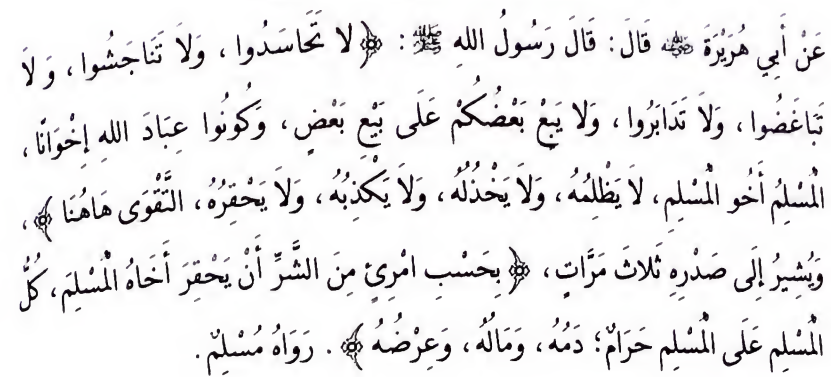 عَنْ أَبِي هُرَيْرَةَ ﵁ قَالَ: قَالَ رَسُولُ اللهِ ﷺ: ﴿لا تَحَاسَدُوا، وَلاَ تَنَاجَشُوا، وَلاَ
تَبَاغَضُوا، وَلاَ تَدَابَرُوا، وَلا يَبِعْ بَعْضُكُمْ عَلَى بَيْعِ بَعْضٍ، وَكُونُوا عِبَادَ اللهِ إخْوَانًا،
الْمُسْلِمُ أَخُو الْمُسْلِمِ، لاَ يَظْلِمُهُ، وَلاَ يَخْذُلُهُ، وَلاَ يَكْذِبُهُ، وَلاَ يَحْقِرُهُ، التَّقْوَى هَاهُنَا﴾،
وَيُشِيرُ إِلَى صَدْرِهِ ثَلاثَ مَرَّاتٍ، ﴿بِحَسْبِ امْرِئٍ مِنَ الشَّرِّ أَنْ يَحْقِرَ أَخَاهُ الْمُسْلِمَ، كُلُّ
الْمُسْلِمِ عَلَى الْمُسْلِمِ حَرَامٌ؛ دَمُهُ، وَمَالُهُ، وَعِرْضُهُ﴾. رَوَاهُ مُسْلِمٌ.